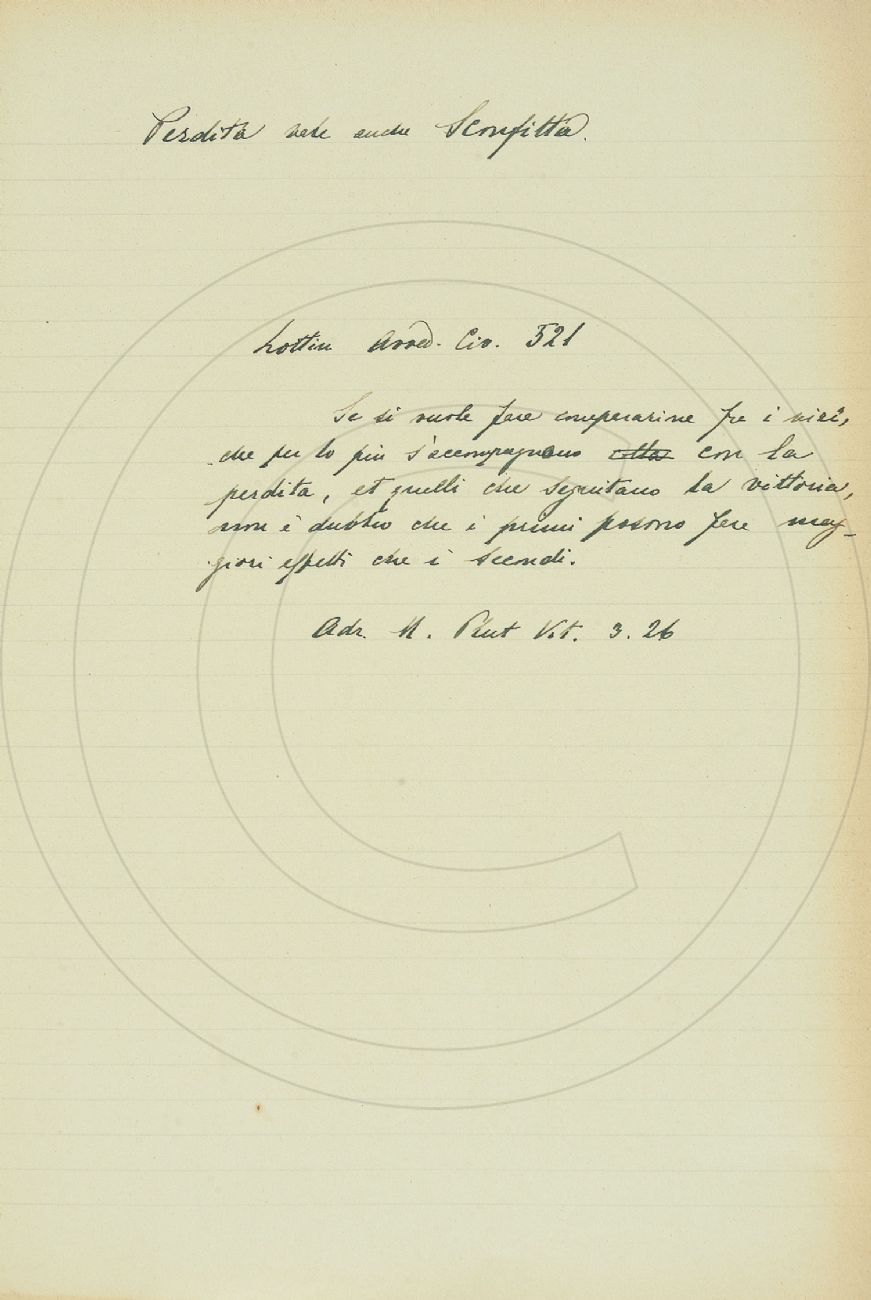 Perdita vale anche Sconfitta.
Lottin Avved. Civ. 521
Se si vuole fare comparazione fra i vizi,
che per lo più s'accompagnano colla con la
perdita, et quelli che seguitano la vittoria,
non è dubbio che i primi posono fare mag-
giori effetti che i secondi.
Adr. M. Plut Vit. 3. 26